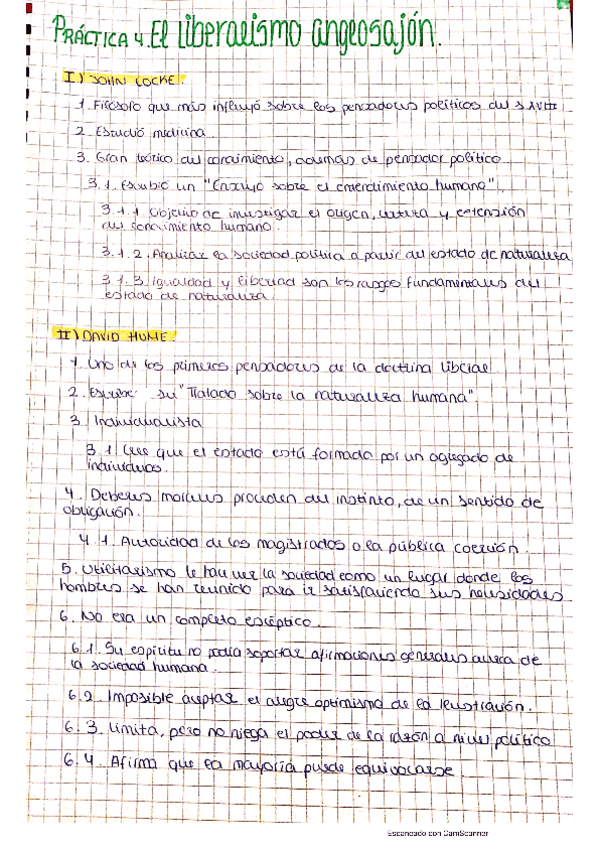 PRÁCTICA 4. El liberalismo anglosajón.
I) JOHN LOCKE.
1. Filósofo que más influyó sobre los pensadores políticos del s. XVIII
2. Estudió medicina
3. Gran teórico del conocimiento, además de pensador político
3.1. Escribió un "Ensayo sobre el entendimiento humano".
3.1.1 Objetivo de investigar el origen, certeza y extensión
del conocimiento humano.
3.1.2. Analizar la sociedad política a partir del estado de naturaleza
3.1.3 Igualdad y libertad son los rasgos fundamentales del
estado de naturaleza.
II) DAVID HUME.
1. Uno de los primeros pensadores de la doctrina liberal
2. Escribe su "Tratado sobre la naturaleza humana".
3. Individualista
3.1. Cree que el estado está formado por un agregado de
individuos.
4. Deberes morales proceden del instinto, de un sentido de
obligación.
4.1. Autoridad de los magistrados o la pública coerción.
5. Utilitarismo le hace ver la sociedad como un lugar donde los
hombres se han reunido para ir satisfaciendo sus necesidades
6. No era un completo escéptico.
6.1. Su espíritu no podía soportar afirmaciones generales acerca de
la sociedad humana.
6.2. Imposible aceptar el alegre optimismo de la Ilustración.
6.3. Limita, pero no niega el poder de la razón a nivel político
6.4. Afirma que la mayoría puede equivocarse
Escaneado con CamScanner